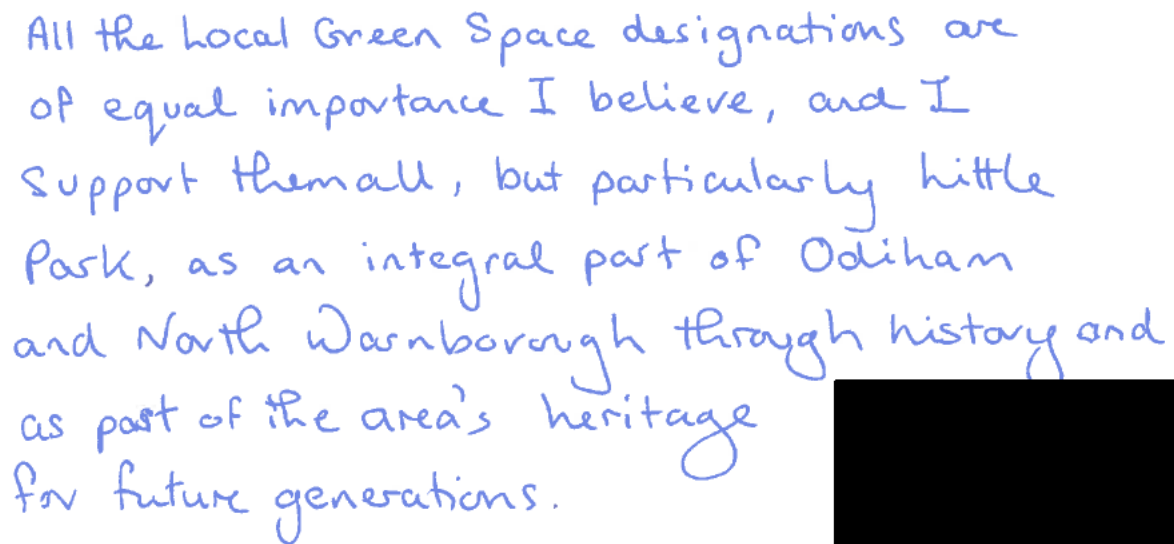 All the Local Green Space designations are
of equal importance I believe, and I
support them all, but particularly Little
Park, as an integral part of Odiham
and North Warnborough through history and
as part of the area's heritage
for future generations.